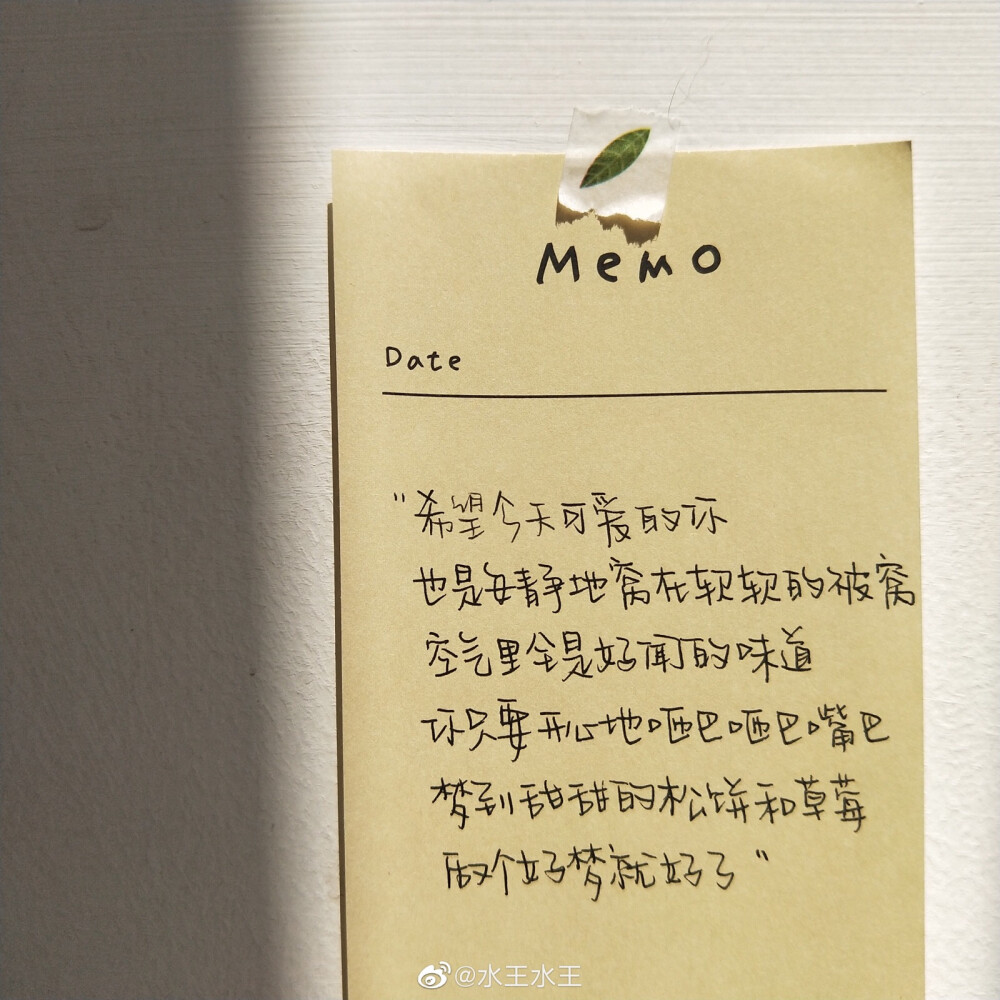 Memo
Date
“希望今天可爱的你
也是安静地窝在软软的被窝
空气里全是好闻的味道
你只要开心地咂巴咂巴嘴巴
梦到甜甜的松饼和草莓
做个好梦就好了”
@水王水王